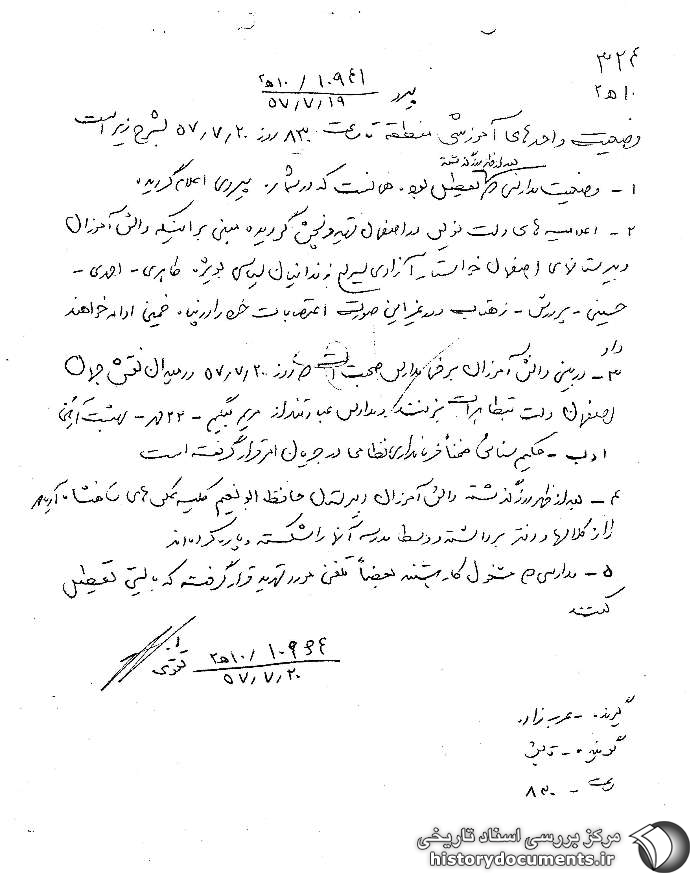 ۳۲۴
۱۰ ه‍ ۲
پیرو ۱۰۹۴۱ / ۱۰ ه‍ ۲
۵۷٫۷٫۱۹
وضعیت واحدهای آموزشی منطقه تا ساعت ۸۳۰ روز ۵۷٫۷٫۲۰ بشرح زیر است
بعدازظهر روز گذشته
۱ - وضعیت مدارس که تعطیل بوده همانست که در شماره پیروی اعلام گردیده
۲ - اعلامیه های دست نویس در اصفهان تهیه و پخش گردیده مبنی بر اینکه دانش آموزان
دبیرستانهای اصفهان خواستار آزادی سریع زندانیان سیاسی بویژه طاهری - احمدی -
حسینی - پرورش - زهتاب و در غیر این صورت اعتصابات خود را در پناه خمینی ادامه خواهند
داد
۳ - در بین دانش آموزان برخی مدارس صحبت است که روز ۵۷٫۷٫۲۰ در میدان نقش جهان
اصفهان دست بتظاهرات بزنند مدارس عبارتند از مریم بیگم - ۲۲ مهر - بهشت آئین
ادب - حکیم سنائی ضمناً فرمانداری نظامی در جریان امر قرار گرفته است
۴ - بعدازظهر روز گذشته دانش آموزان دبیرستان حافظ ابونعیم کلیه عکس های شاهنشاه آریامهر
را از کلاسها و دفتر برداشته و وسط مدرسه آنها را شکسته و پاره کرده اند
۵ - مدارسی که مشغول کار هستند بعضاً تلفنی مورد تهدید قرار گرفته که بایستی تعطیل
کنند
۱۰۹۴۴ / ۱۰ ه‍ ۲
۵۷٫۷٫۲۰
تقوی
گیرنده - عرب زاده
گوینده - تابش
ساعت - ۸۳۰
مرکز بررسی اسناد تاریخی
historydocuments.ir